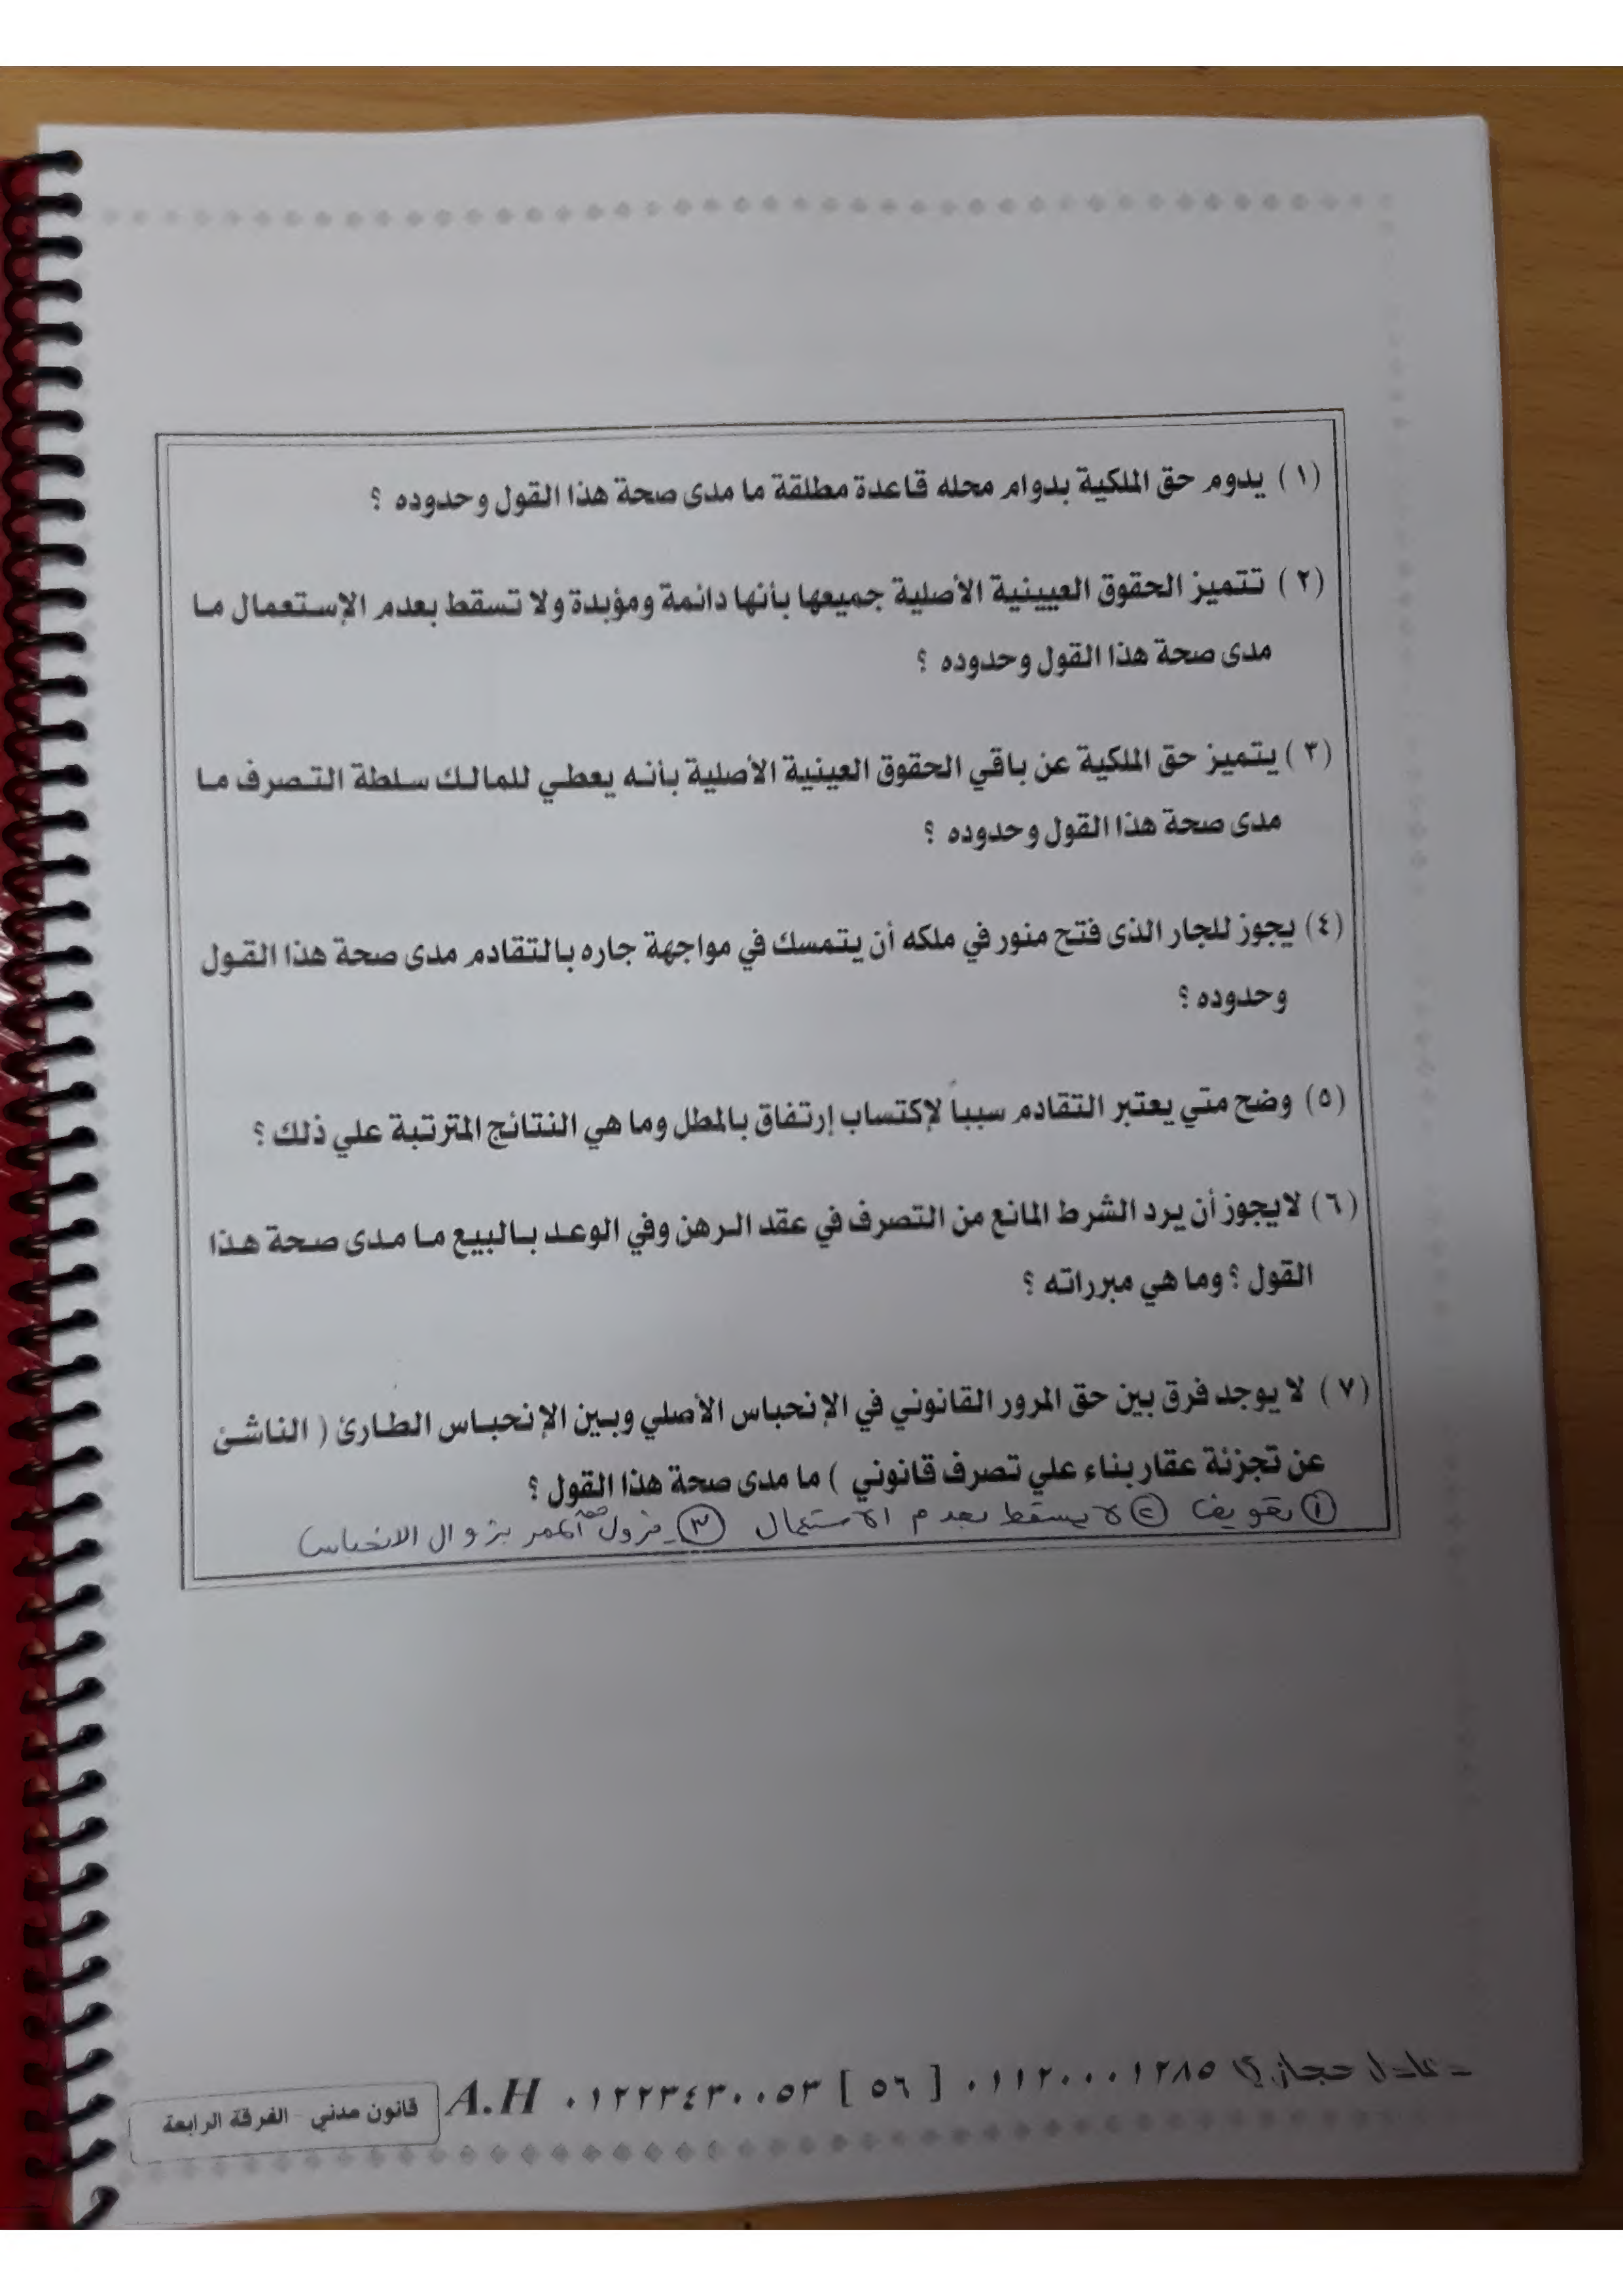 (١) يدوم حق الملكية بدوام محله قاعدة مطلقة ما مدى صحة هذا القول وحدوده ؟
(٢) تتميز الحقوق العيينية الأصلية جميعها بأنها دائمة ومؤبدة ولا تسقط بعدم الإستعمال ما
مدى صحة هذا القول وحدوده ؟
(٣) يتميز حق الملكية عن باقي الحقوق العينية الأصلية بأنه يعطي للمالك سلطة التصرف ما
مدى صحة هذا القول وحدوده ؟
(٤) يجوز للجار الذى فتح منور في ملكه أن يتمسك في مواجهة جاره بالتقادم مدى صحة هذا القول
وحدوده ؟
(٥) وضح متي يعتبر التقادم سبباً لإكتساب إرتفاق بالمطل وما هي النتائج المترتبة علي ذلك ؟
(٦) لايجوز أن يرد الشرط المانع من التصرف في عقد الرهن وفي الوعد بالبيع ما مدى صحة هذا
القول ؟ وما هي مبرراته ؟
(٧) لا يوجد فرق بين حق المرور القانوني في الإنحباس الأصلي وبين الإنحباس الطارئ ( الناشئ
عن تجزئة عقار بناء علي تصرف قانوني ) ما مدى صحة هذا القول ؟
① تعويض ② لا يسقط بعدم الاستعمال ③ يزول حق الممر بزوال الانحباس
عادل حجازي ٠١١٢٠٠٠١٢٨٥ [ ٥٦ ] ٠١٢٢٣٤٣٠٠٥٣ A.H
قانون مدني - الفرقة الرابعة